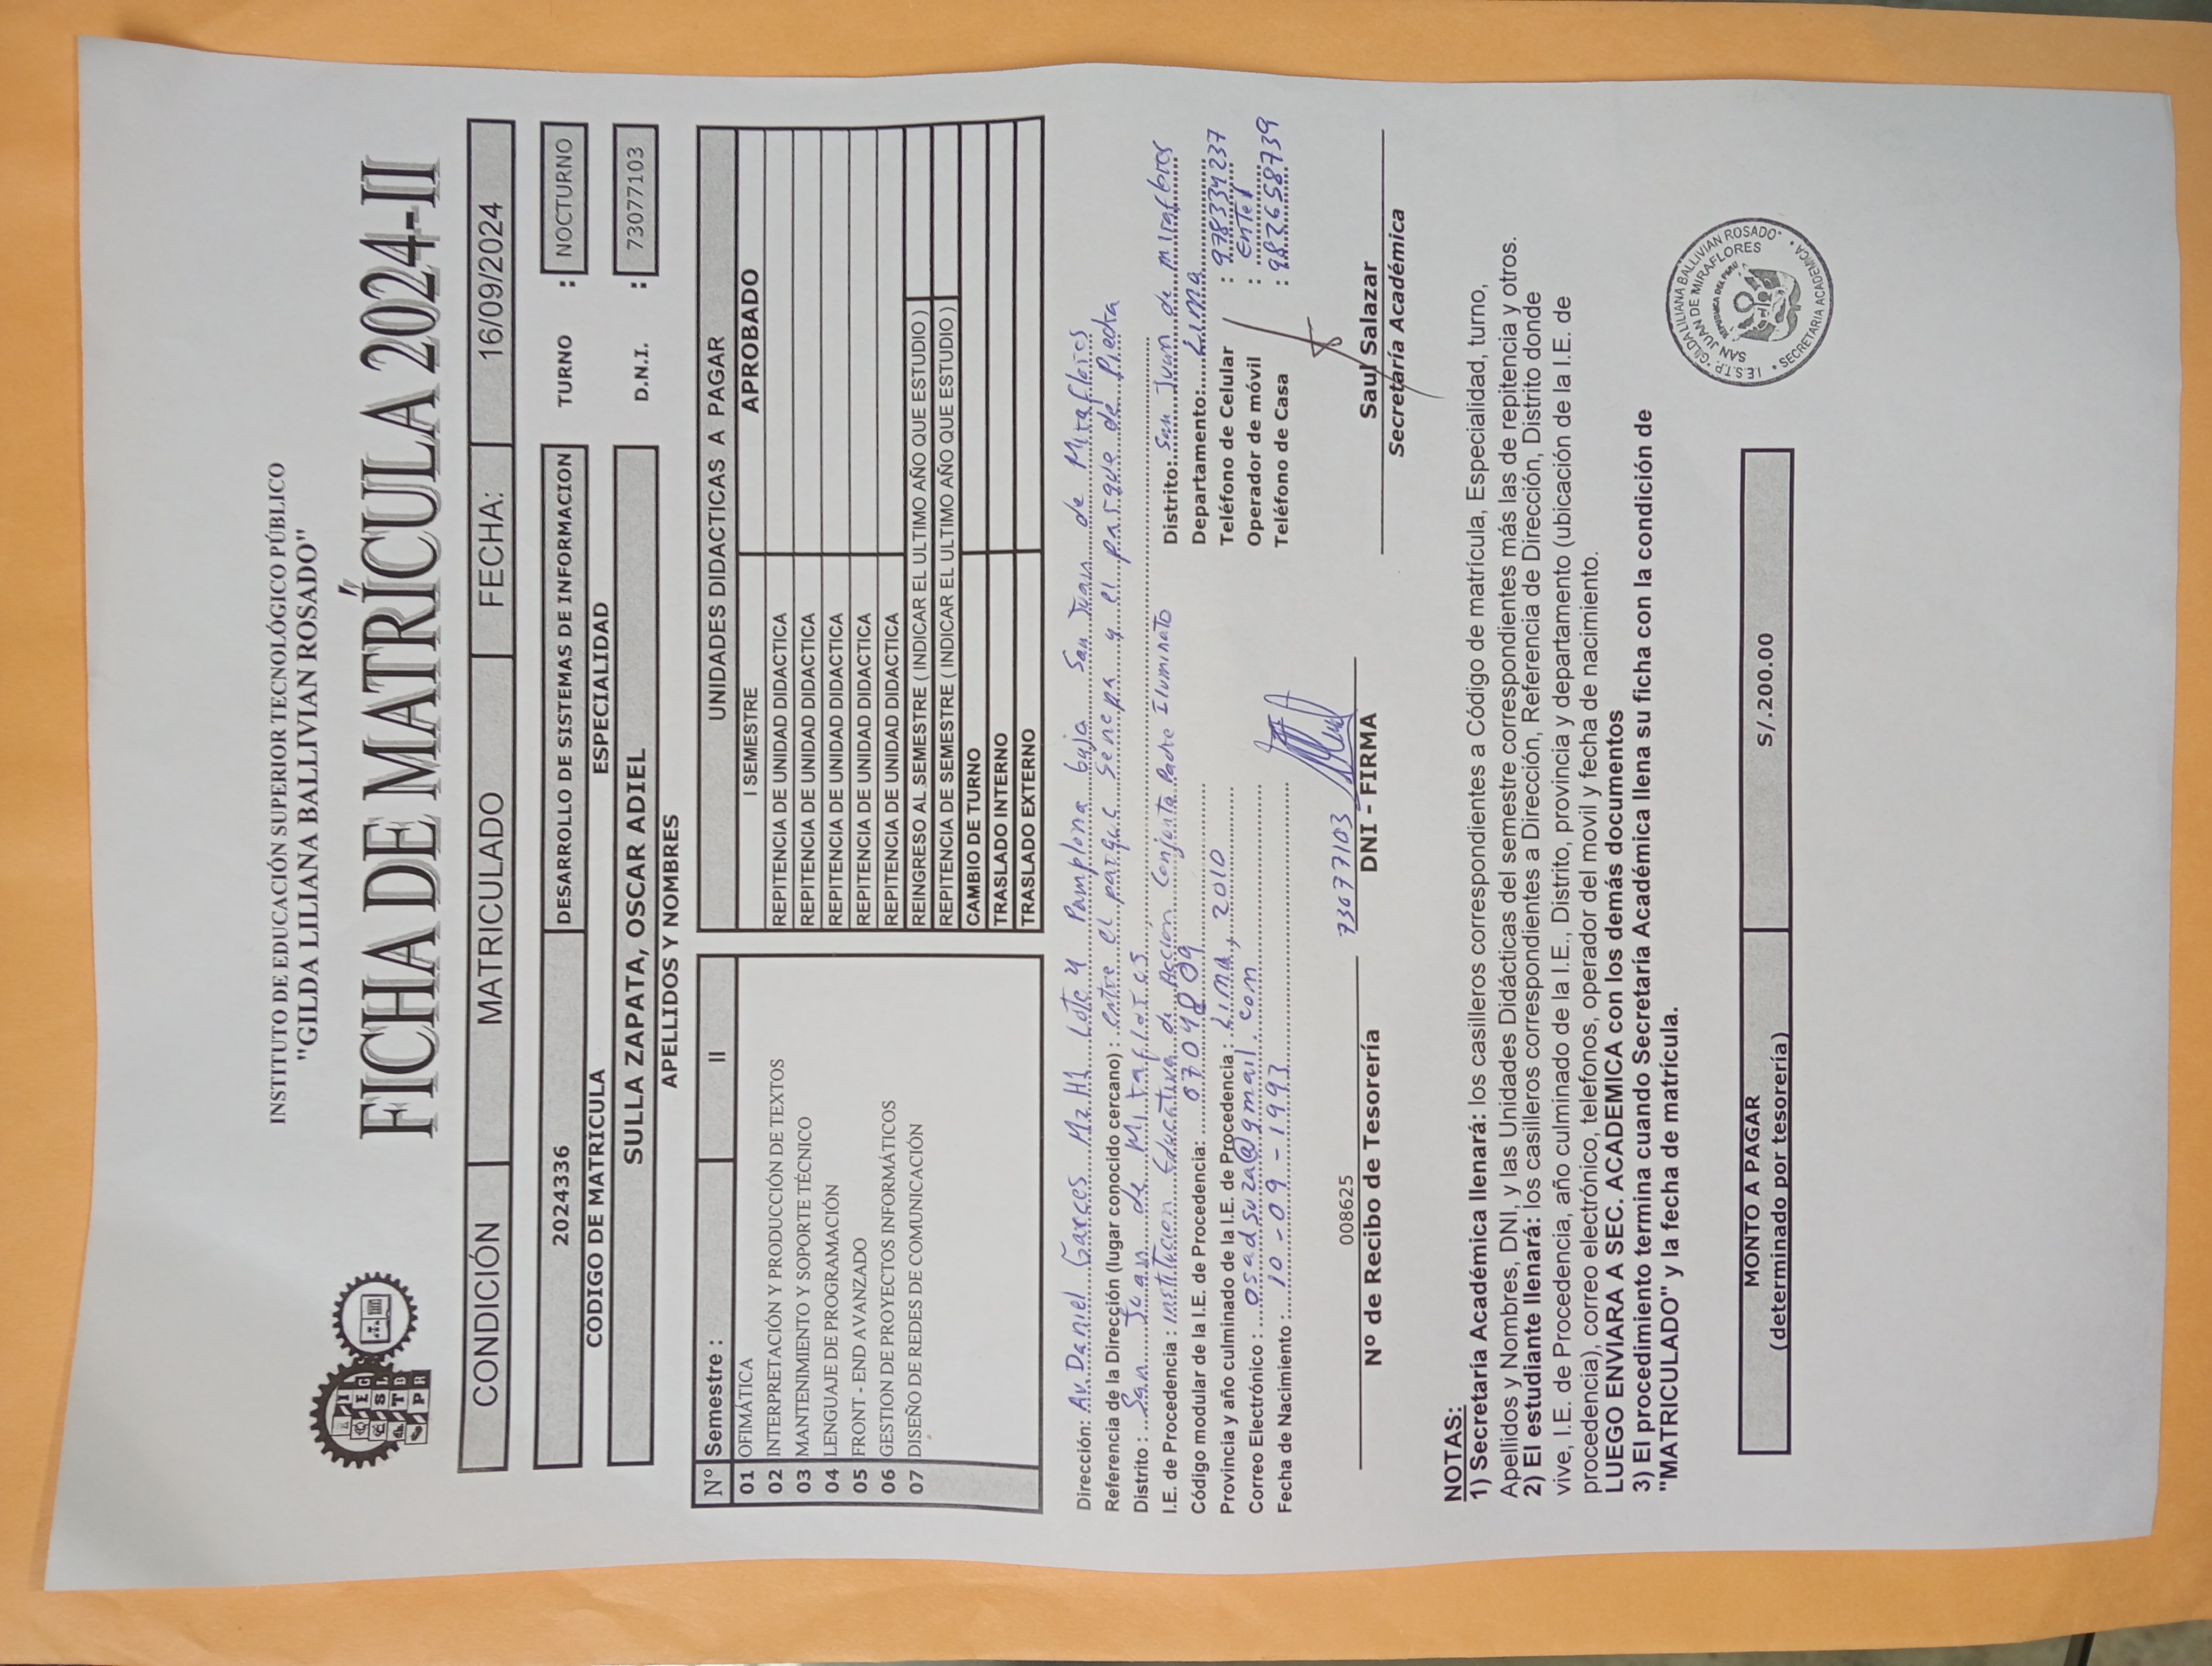 INSTITUTO DE EDUCACIÓN SUPERIOR TECNOLÓGICO PÚBLICO
"GILDA LILIANA BALLIVIAN ROSADO"
I E S T P
G L B R
FICHA DE MATRÍCULA 2024-II
CONDICIÓN MATRICULADO FECHA: 16/09/2024
2024336 DESARROLLO DE SISTEMAS DE INFORMACION TURNO : NOCTURNO
CÓDIGO DE MATRÍCULA ESPECIALIDAD
SULLA ZAPATA, OSCAR ADIEL D.N.I. : 73077103
APELLIDOS Y NOMBRES
Nº Semestre : II
01 OFIMÁTICA
02 INTERPRETACIÓN Y PRODUCCIÓN DE TEXTOS
03 MANTENIMIENTO Y SOPORTE TÉCNICO
04 LENGUAJE DE PROGRAMACIÓN
05 FRONT - END AVANZADO
06 GESTION DE PROYECTOS INFORMÁTICOS
07 DISEÑO DE REDES DE COMUNICACIÓN
UNIDADES DIDACTICAS A PAGAR
I SEMESTRE APROBADO
REPITENCIA DE UNIDAD DIDACTICA
REPITENCIA DE UNIDAD DIDACTICA
REPITENCIA DE UNIDAD DIDACTICA
REPITENCIA DE UNIDAD DIDACTICA
REPITENCIA DE UNIDAD DIDACTICA
REINGRESO AL SEMESTRE ( INDICAR EL ULTIMO AÑO QUE ESTUDIO )
REPITENCIA DE SEMESTRE ( INDICAR EL ULTIMO AÑO QUE ESTUDIO )
CAMBIO DE TURNO
TRASLADO INTERNO
TRASLADO EXTERNO
Dirección: Av. Daniel Garces Mz H1 Lote 4 Pamplona baja San Juan de Miraflores
Referencia de la Dirección (lugar conocido cercano) : entre el parque Senepa y el parque de Piedra
Distrito : San Juan de Miraflores
I.E. de Procedencia : Institucion Educativa de Accion Conjunta Padre Iluminato Distrito: San Juan de miraflores
Código modular de la I.E. de Procedencia: 0704809 Departamento: Lima
Provincia y año culminado de la I.E. de Procedencia : Lima, 2010 Teléfono de Celular : 978334237
Correo Electrónico : osadsuza@gmail.com Operador de móvil : Entel
Fecha de Nacimiento : 10-09-1993 Teléfono de Casa : 982658739
008625 73077103
Nº de Recibo de Tesorería DNI - FIRMA Saul Salazar
Secretaría Académica
NOTAS:
1) Secretaría Académica llenará: los casilleros correspondientes a Código de matrícula, Especialidad, turno,
Apellidos y Nombres, DNI, y las Unidades Didácticas del semestre correspondientes más las de repitencia y otros.
2) El estudiante llenará: los casilleros correspondientes a Dirección, Referencia de Dirección, Distrito donde
vive, I.E. de Procedencia, año culminado de la I.E., Distrito, provincia y departamento (ubicación de la I.E. de
procedencia), correo electrónico, telefonos, operador del movil y fecha de nacimiento.
LUEGO ENVIARA A SEC. ACADEMICA con los demás documentos
3) El procedimiento termina cuando Secretaría Académica llena su ficha con la condición de
"MATRICULADO" y la fecha de matrícula.
MONTO A PAGAR
(determinado por tesorería) S/.200.00
I.E.S.T.P. "GILDA LILIANA BALLIVIAN ROSADO"
SAN JUAN DE MIRAFLORES
REPUBLICA DEL PERU
SECRETARIA ACADEMICA